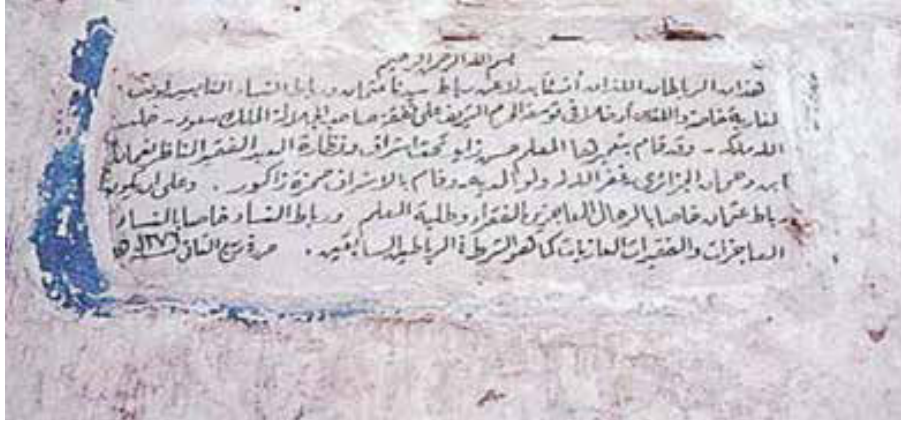 بسم الله الرحمن الرحيم
هذان الرباطان اللذان أنشئا بدلا عن رباط سيدنا عثمان ورباط النساء التابعين لوقف
المغاربة خاصة واللذان أدخلا في توسعة الحرم الشريف على نفقة صاحب الجلالة الملك سعود - خلد
الله ملكه - وقد قام بتعميرها المعلم حسن زايد تحت اشراف ونظارة العبد الفقير الناظر نعمان
ابن دحمان الجزائري غفر الله له ولوالديه وقام بالاشراف حمزة زاكور . وعلى ان يكون
رباط عثمان خاصا بالرجال العاجزين بالفقراء وطلبة العلم ورباط النساء خاصا بالنساء
العاجزات والفقيرات العازبات كما هو الشرط في الرباطين السابقين . حرر في ربيع الثاني ١٣٧٦